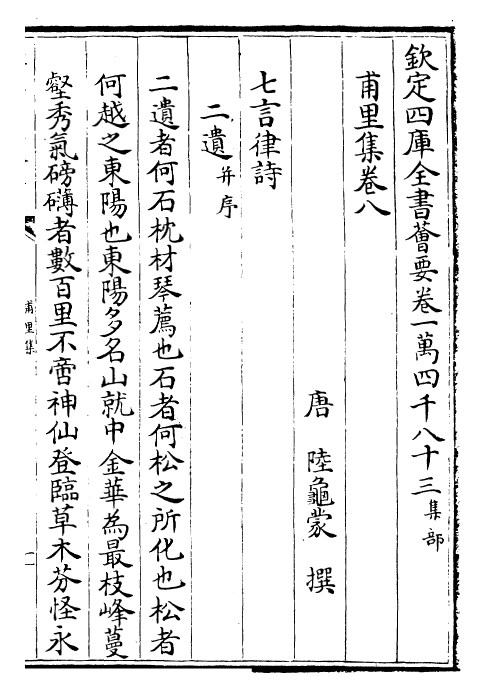 欽定四庫全書薈要卷一萬四千八十三集部
甫里集卷八
唐　陸龜蒙　撰
七言律詩
二遺并序
二遺者何石枕材琴薦也石者何松之所化也松者
何越之東陽也東陽多名山就中金華為最枝峰蔓
壑秀氣磅礴者數百里不啻神仙登臨草木芬怪永
甫里集
一